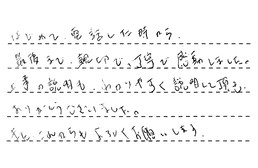 はじめて、電話した時から、
最後まで、親切で、丁寧で感動しました。
工事の説明も、わかりやすく説明して頂き、
ありがとうございました。
また、これからもよろしくお願いします。